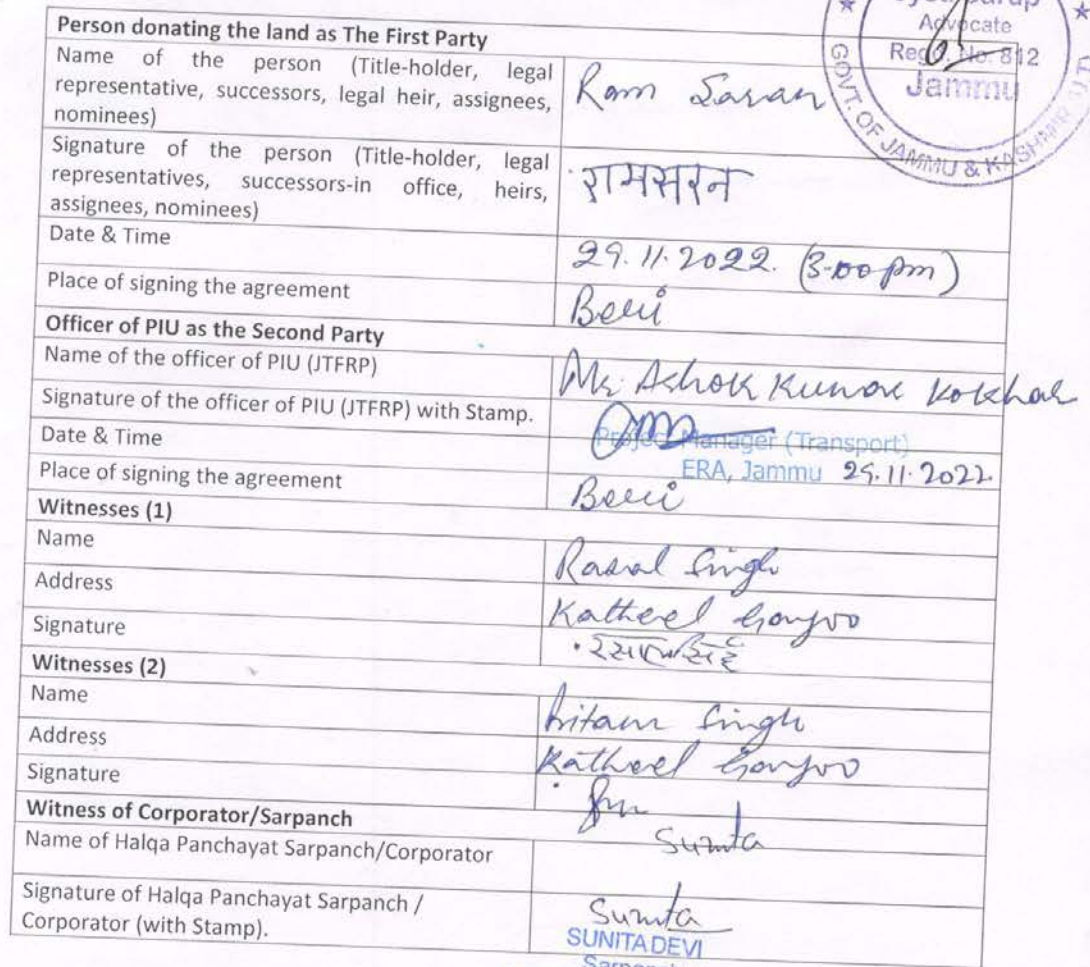 Advocate
Regd. No. 812
Jammu
GOVT. OF JAMMU & KASHMIR
Person donating the land as The First Party
Name of the person (Title-holder, legal
representative, successors, legal heir, assignees,
nominees)
Ram Saran
Signature of the person (Title-holder, legal
representatives, successors-in office, heirs,
assignees, nominees)
रामसरन
Date & Time
29.11.2022. (3-00 pm)
Place of signing the agreement
Officer of PIU as the Second Party
Name of the officer of PIU (JTFRP)
Mr. Ashok Kumar Kokhar
Signature of the officer of PIU (JTFRP) with Stamp.
Project Manager (Transport)
Date & Time
ERA, Jammu 29.11.2022
Place of signing the agreement
Witnesses (1)
Name
Singh
Address
Signature
Witnesses (2)
Name
Singh
Address
Signature
Witness of Corporator/Sarpanch
Name of Halqa Panchayat Sarpanch/Corporator
Sunita
Signature of Halqa Panchayat Sarpanch /
Corporator (with Stamp).
Sunita
SUNITA DEVI